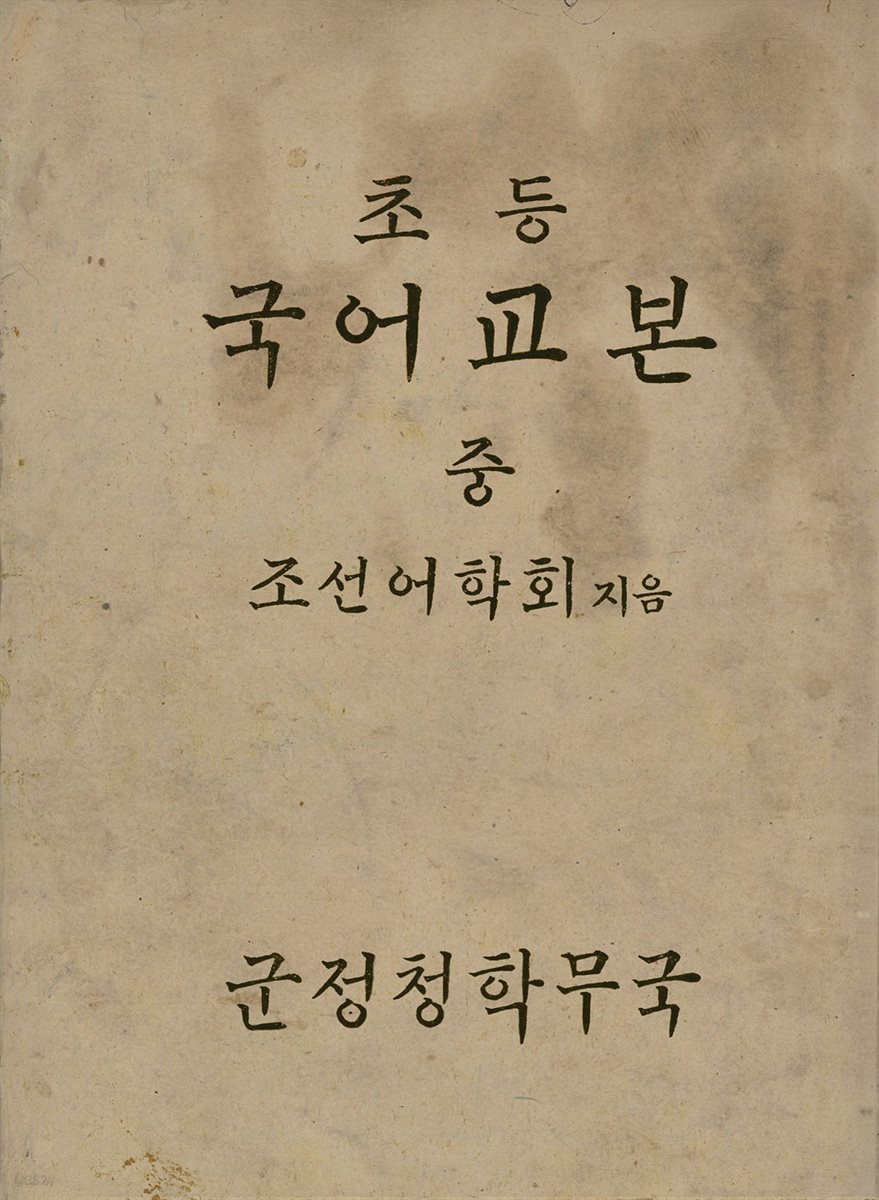 초등
국어교본
중
조선어학회 지음
군정청학무국